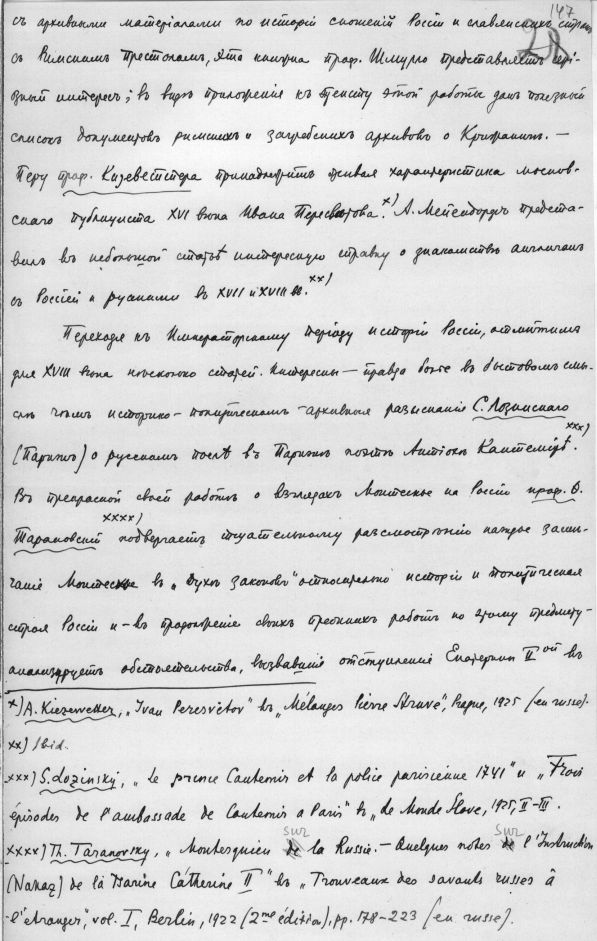 147
28
съ архивными матерiалами по исторiи сношенiй Россiи и славянскихъ странъ
съ Римскимъ Престоломъ, эта книжка проф. Шмурло представляетъ серi-
озный интересъ; въ видѣ приложенiя къ тексту этой работы данъ полезный
списокъ документовъ римскихъ и загребскихъ архивовъ о Крижаничѣ. —
Перу проф. Кизеветтера принадлежитъ живая характеристика москов-
скаго публициста XVI вѣка Ивана Пересвѣтова. x) А. Мейендорфъ предста-
вилъ въ небольшой статьѣ интересную справку о знакомствѣ англичанъ
съ Россiей и русскими въ XVII и XVIII вв. xx)
Переходя къ Императорскому перiоду исторiи Россiи, отмѣтимъ
для XVIII вѣка нѣсколько статей. Интересны — правда болѣе въ бытовомъ смы-
слѣ чѣмъ историко-политическомъ — архивныя разысканiя С. Лозинскаго
(Парижъ) о русскомъ послѣ въ Парижѣ поэтѣ Антiохѣ Кантемiрѣ. xxx)
Въ прекрасной своей работѣ о взглядахъ Монтескье на Россiю проф. Ѳ.
Тарановскiй xxxx) подвергаетъ тщательному разсмотрѣнiю каждое замѣ-
чанiе Монтескье въ „Духѣ законовъ" относительно исторiи и политическаго
строя Россiи и — въ продолженiе своихъ прежнихъ работъ по этому предмету —
анализируетъ обстоятельства, вызвавшiя отступленiе Екатерины II ой въ
x) A. Kiesewetter, „Ivan Peresvětov" въ „Mélanges Pierre Struve", Prague, 1925 (en russe).
xx) Ibid.
xxx) S. Lozinsky, „Le prince Cantemir et la police parisienne 1741" и „Trois
épisodes de l'ambassade de Cantemir a Paris" въ „Le Monde Slave, 1925, II-III.
xxxx) Th. Taranovsky, „Montesquieu sur la Russie. — Quelques notes sur l'Instruction
(Nakaz) de la Tsarine Cathérine II" въ „Trouveaux des savants russes à
l'étranger", vol. I, Berlin, 1922 (2me édition), pp. 178-223 (en russe).